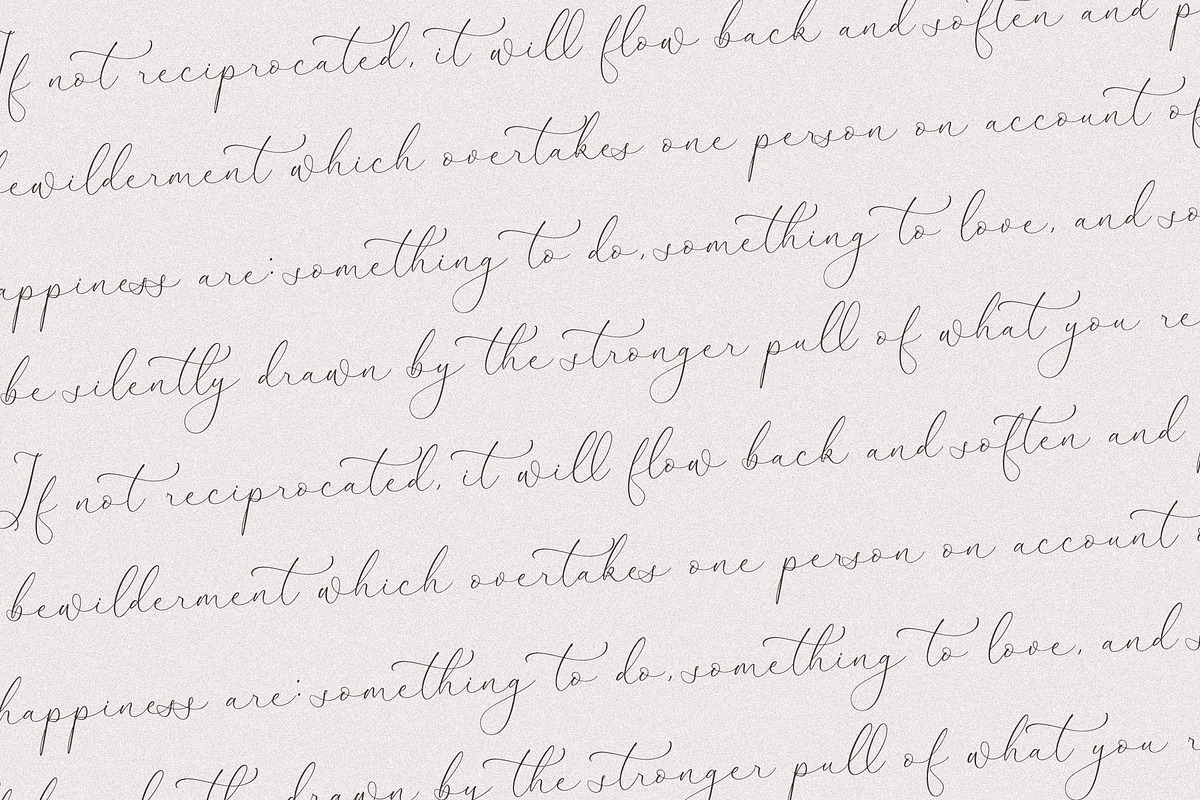 If not reciprocated, it will flow back and soften and
bewilderment which overtakes one person on account of
appiness are: something to do, something to love, and so
be silently drawn by the stronger pull of what you re
If not reciprocated, it will flow back and soften and
bewilderment which overtakes one person on account
happiness are: something to do, something to love, and s
drawn by the stronger pull of what you r